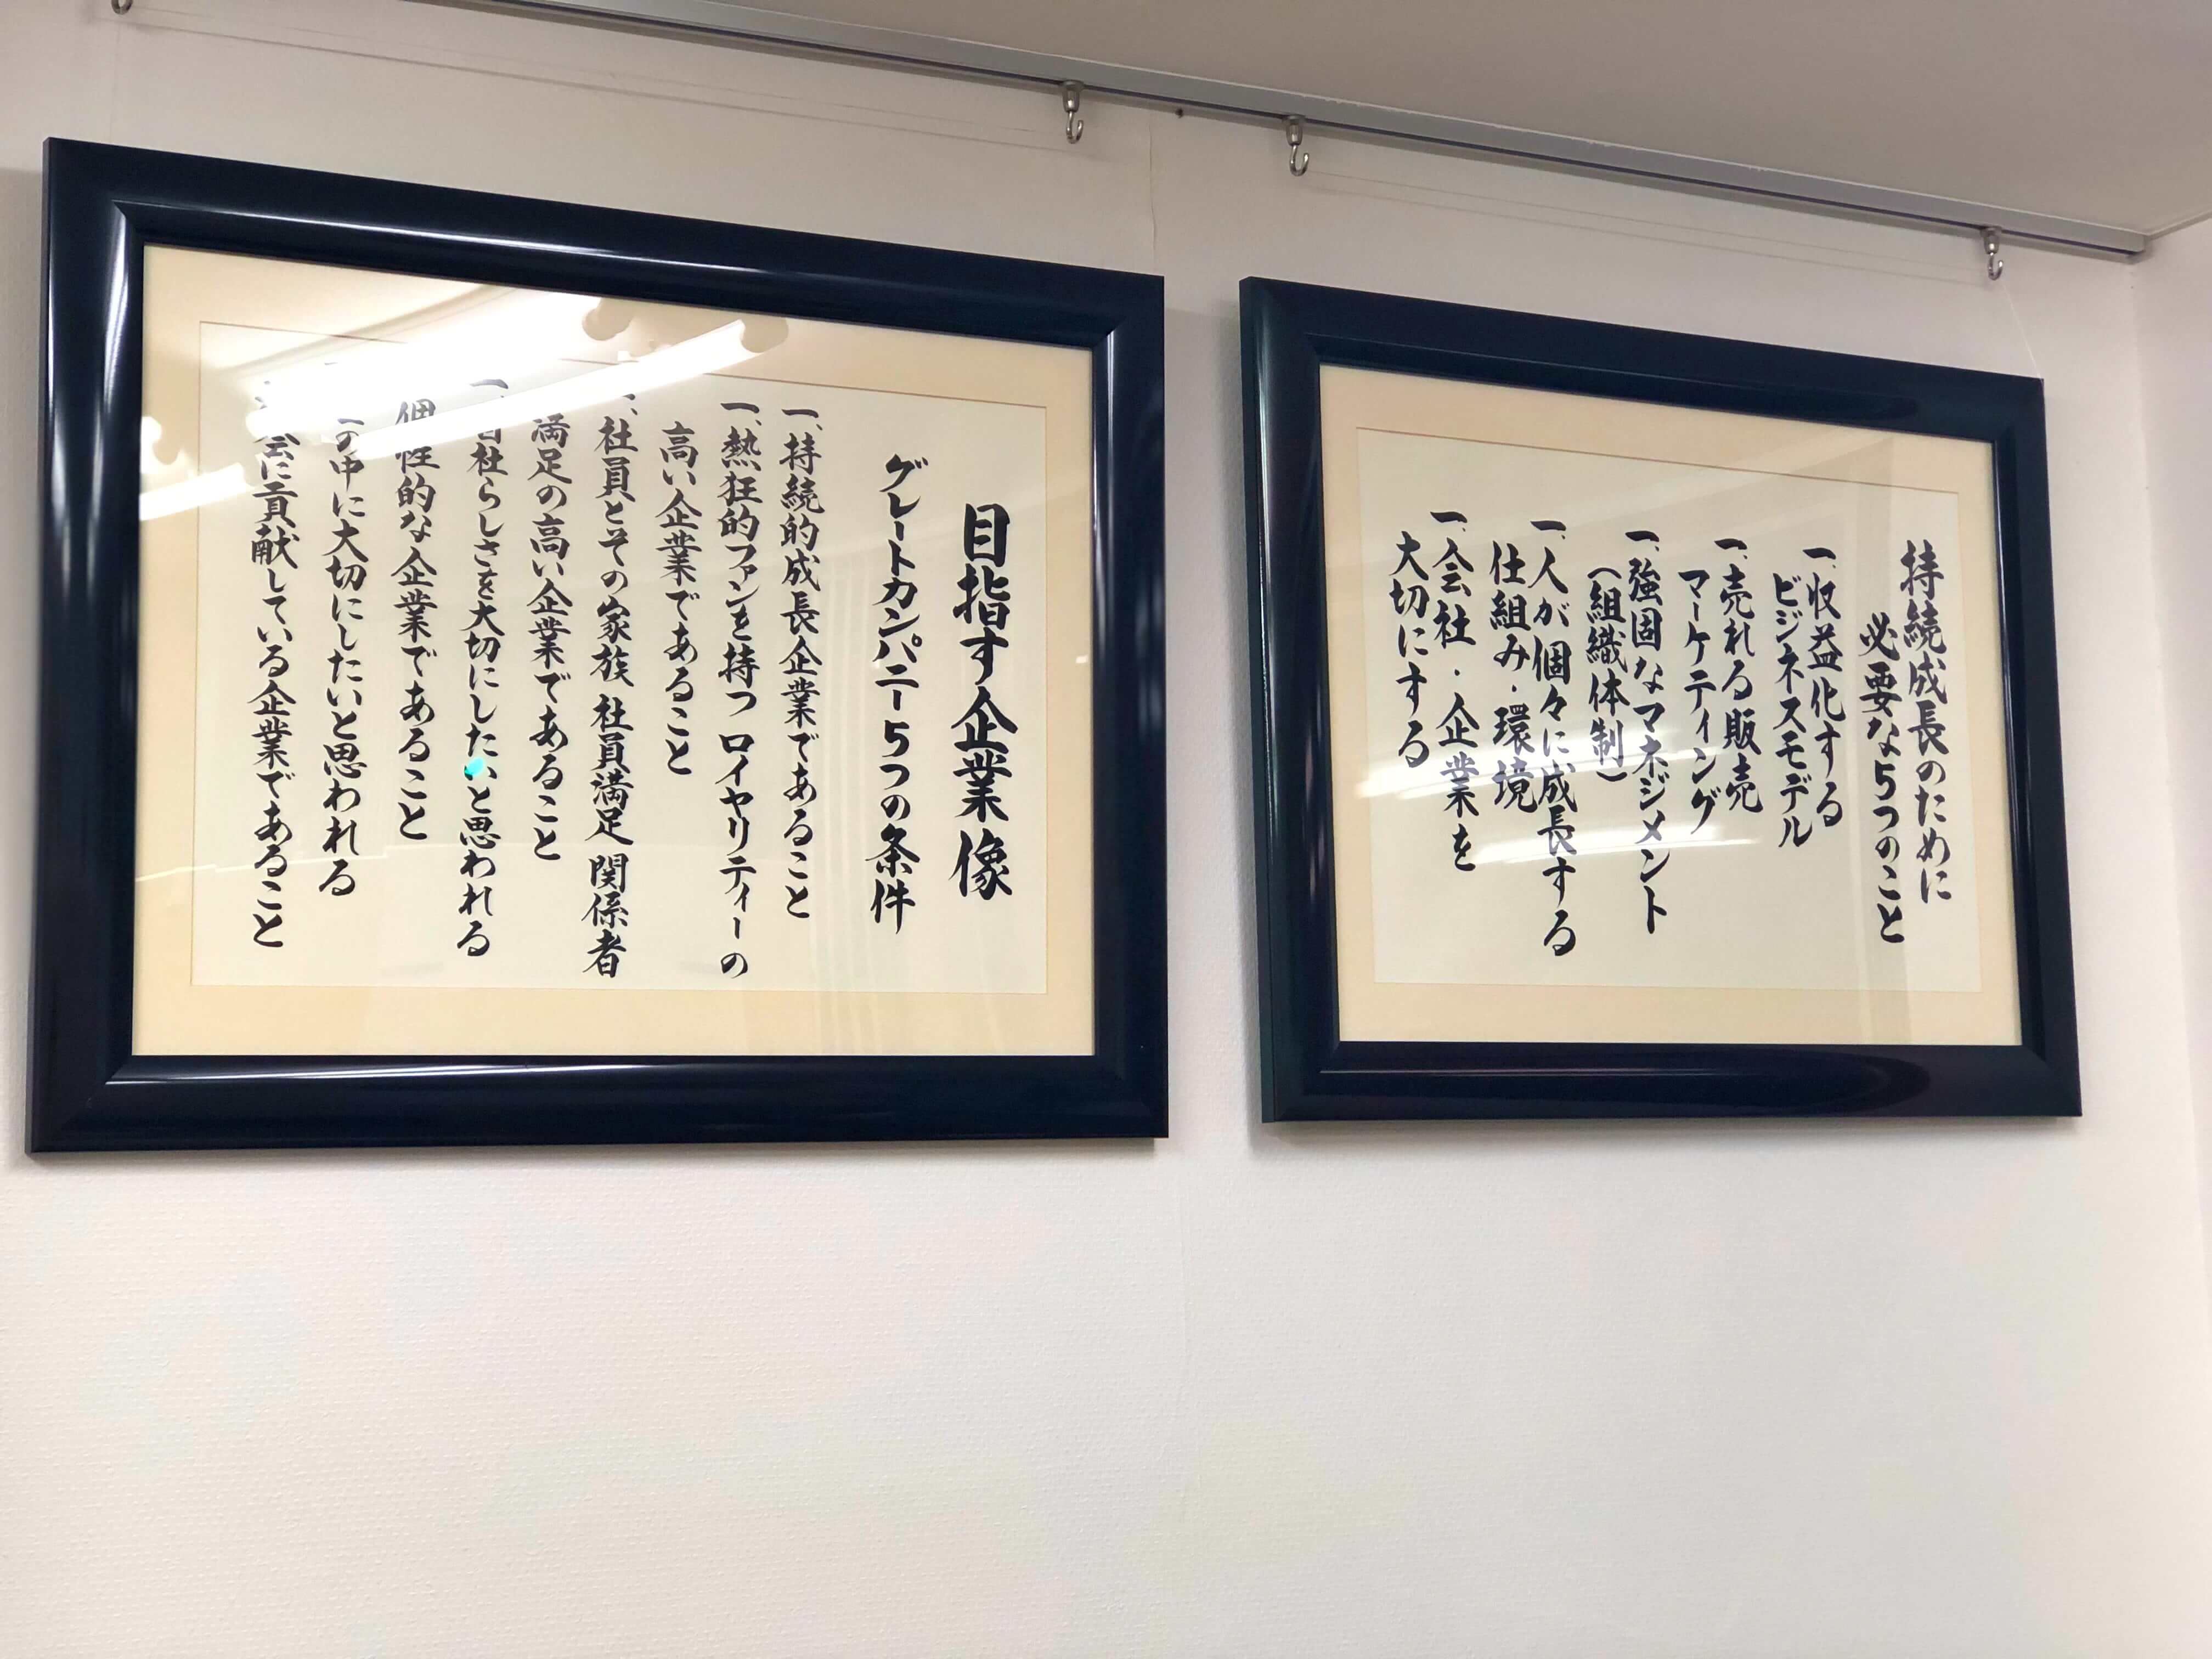 持続成長のために
必要な5つのこと
一、収益化する
ビジネスモデル
一、売れる販売
マーケティング
一、強固なマネジメント
(組織体制)
一、人が個々に成長する
仕組み・環境
一、会社・企業を
大切にする
目指す企業像
グレートカンパニー5つの条件
一、持続的成長企業であること
一、熱狂的ファンを持つ ロイヤリティーの
高い企業であること
、社員とその家族 社員満足 関係者
満足の高い企業であること
一、自社らしさを大切にしたいと思われる
個性的な企業であること
の中に大切にしたいと思われる
会に貢献している企業であること